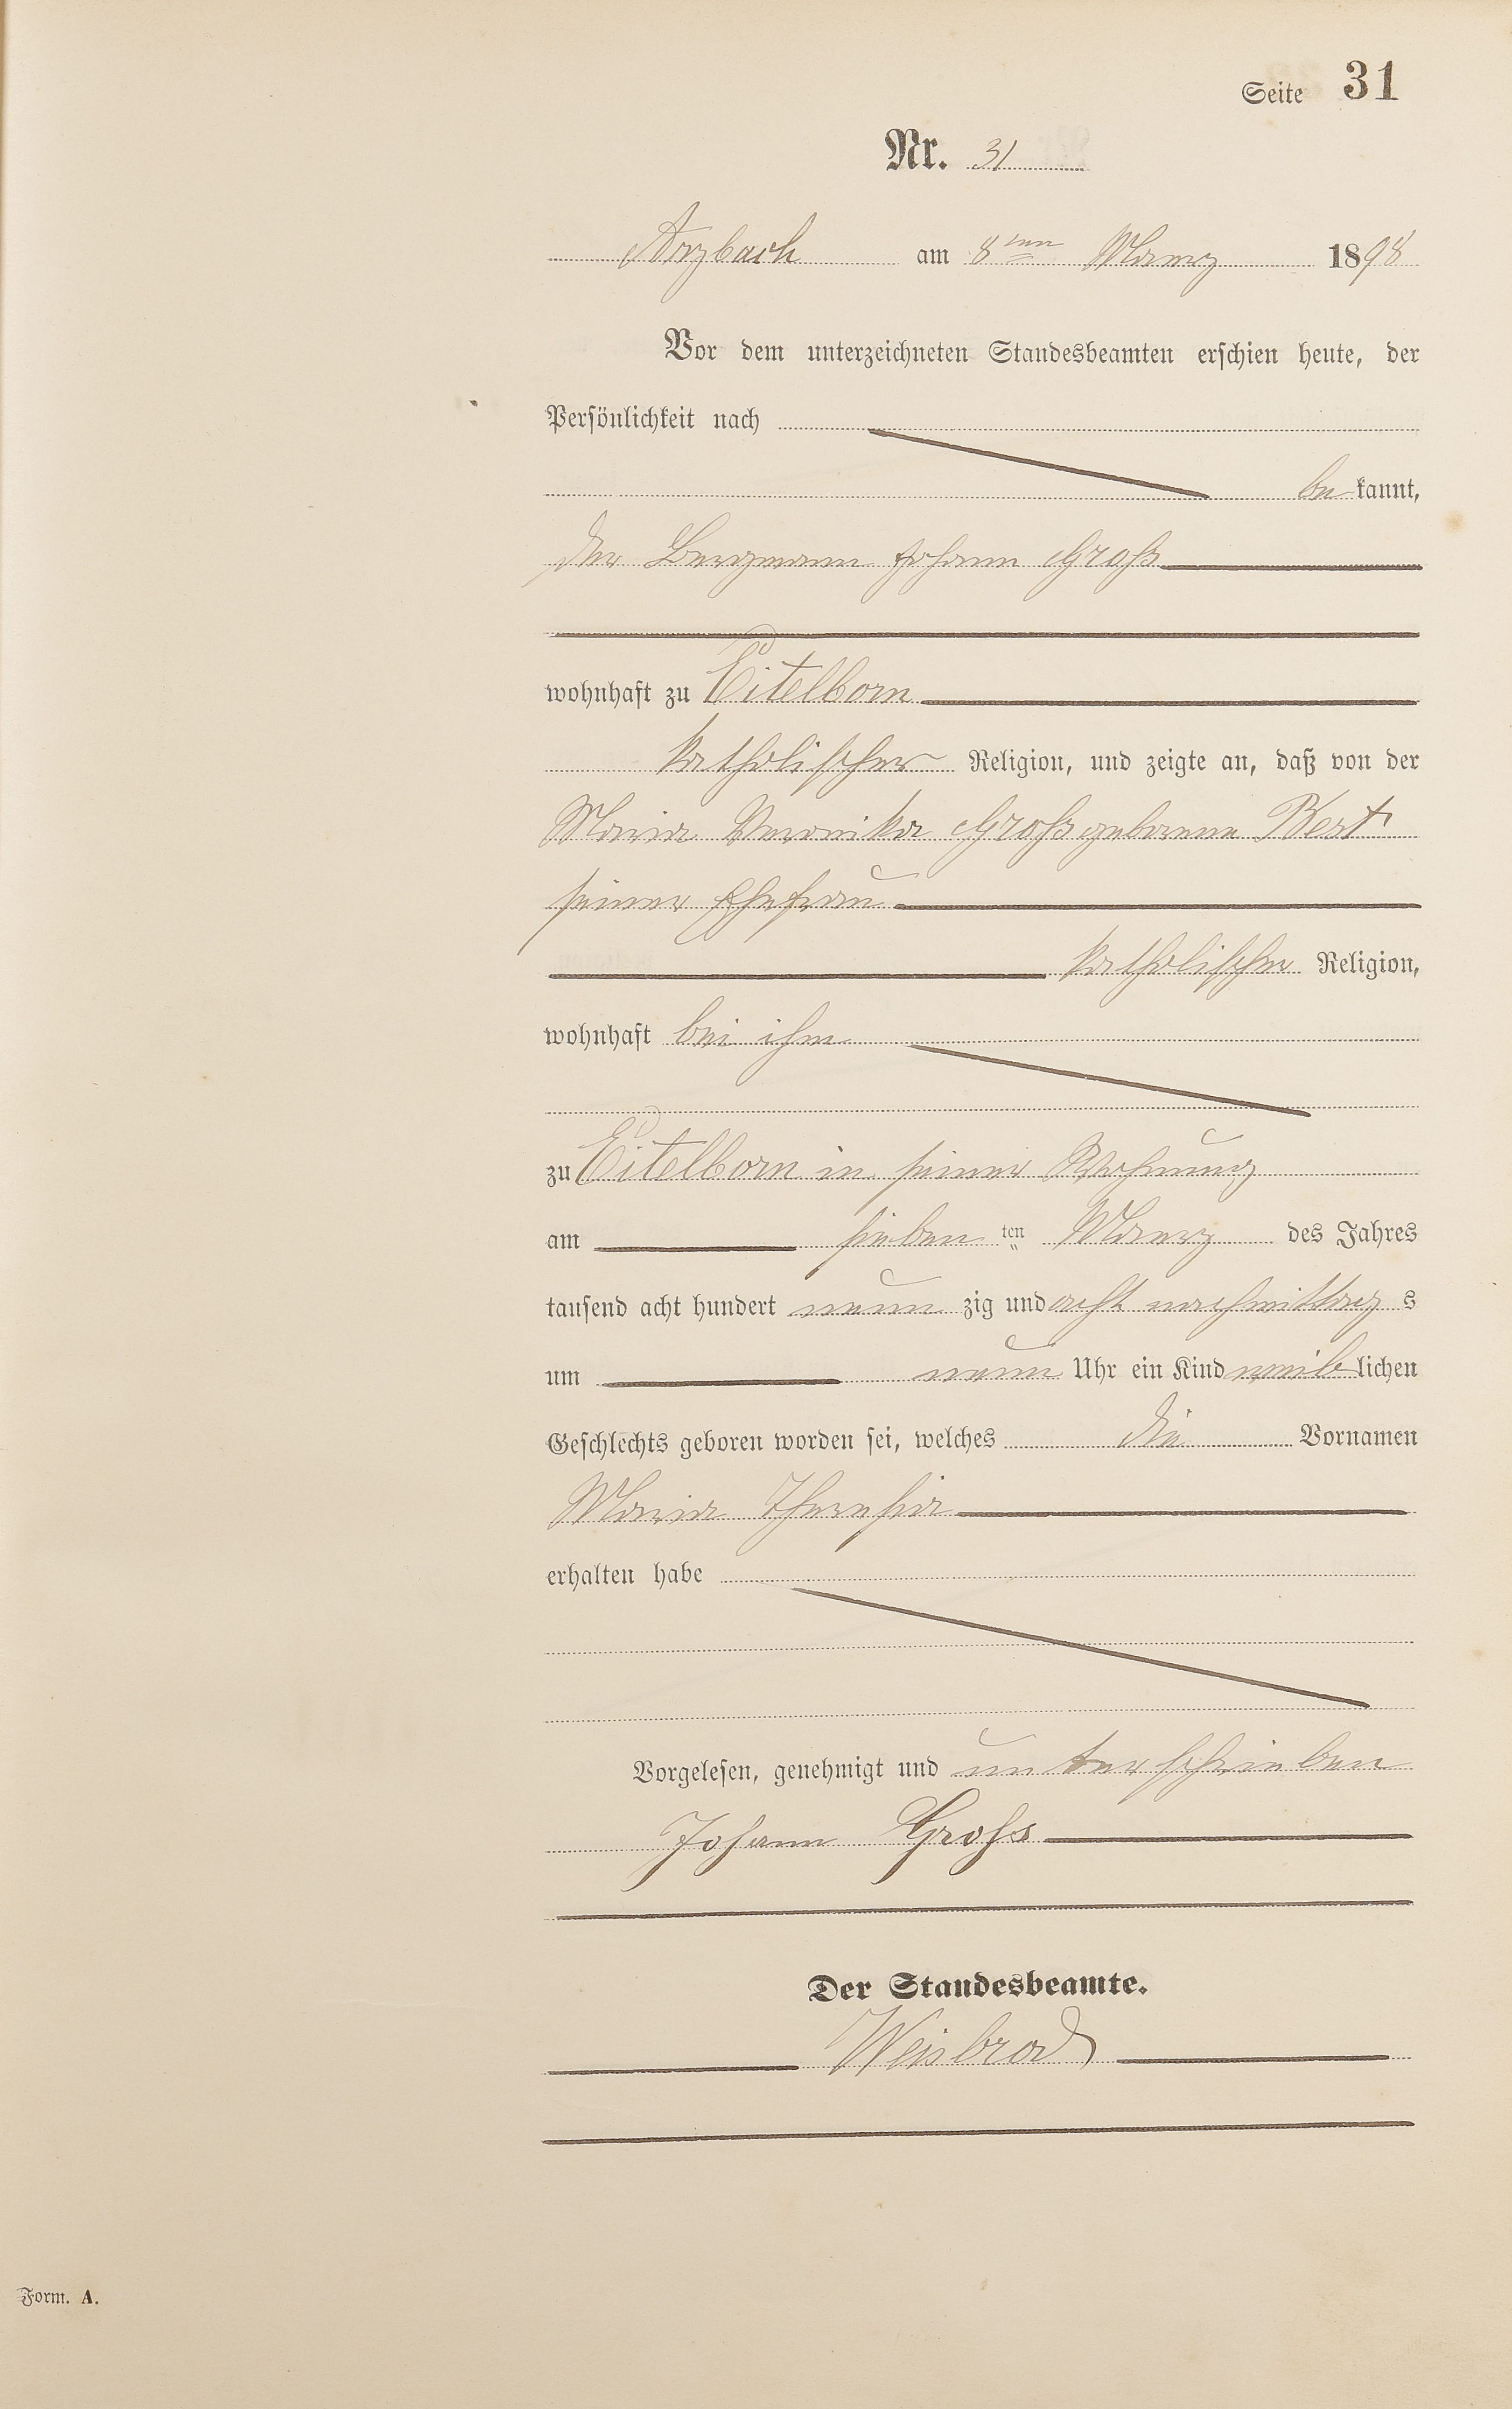 Seite 31
Nr. 31
Arzbach am 8ten Maerz 1898
Vor dem unterzeichneten Standesbeamten erschien heute, der
Persönlichkeit nach
be kannt,
der Bergmann Johann Groß
wohnhaft zu Eitelborn
katholischer Religion, und zeigte an, daß von der
Maria Veronika Groß geborene Best
seiner Ehefrau
katholischer Religion,
wohnhaft bei ihm
zu Eitelborn in seiner Wohnung
am sieben ten Maerz des Jahres
tausend acht hundert neun zig und acht nachmittag s
um neun Uhr ein Kind weib lichen
Geschlechts geboren worden sei, welches die Vornamen
Maria Theresia
erhalten habe
Vorgelesen, genehmigt und unterschrieben
Johann Groß
Der Standesbeamte.
Weisbrod
Form. A.